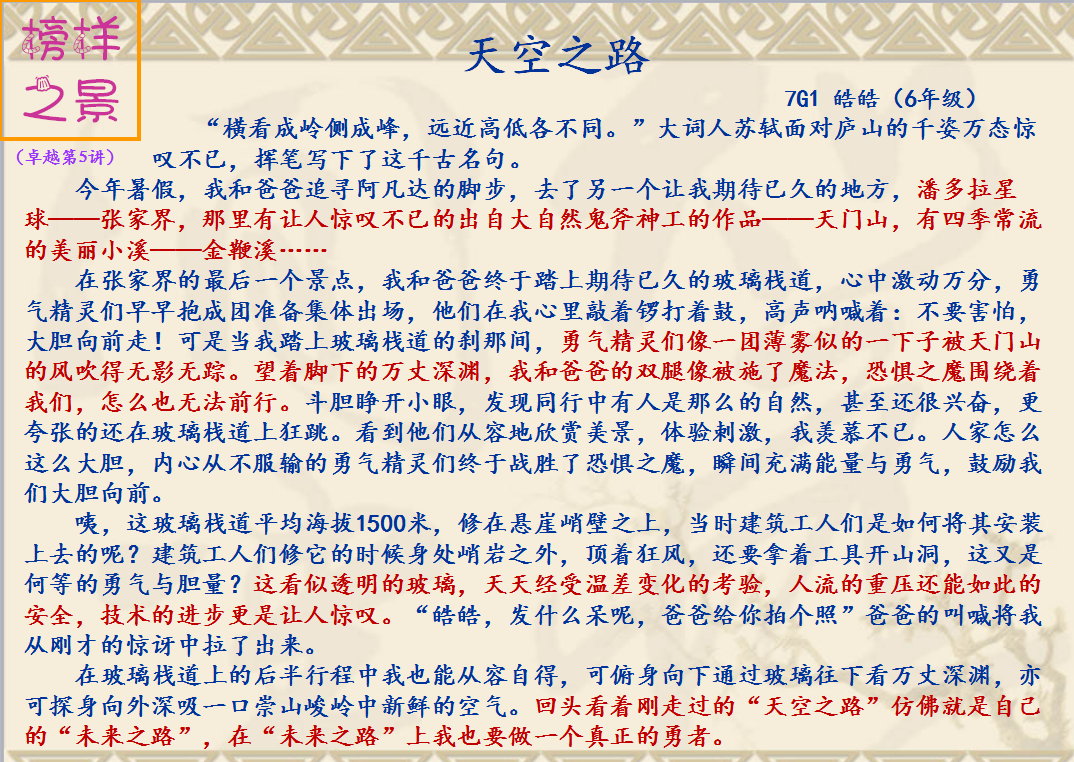 榜样
之景
天空之路
7G1 皓皓（6年级）
“横看成岭侧成峰，远近高低各不同。”大词人苏轼面对庐山的千姿万态惊
（卓越第5讲）
叹不已，挥笔写下了这千古名句。
今年暑假，我和爸爸追寻阿凡达的脚步，去了另一个让我期待已久的地方，潘多拉星
球——张家界，那里有让人惊叹不已的出自大自然鬼斧神工的作品——天门山，有四季常流
的美丽小溪——金鞭溪……
在张家界的最后一个景点，我和爸爸终于踏上期待已久的玻璃栈道，心中激动万分，勇
气精灵们早早抱成团准备集体出场，他们在我心里敲着锣打着鼓，高声呐喊着：不要害怕，
大胆向前走！可是当我踏上玻璃栈道的刹那间，勇气精灵们像一团薄雾似的一下子被天门山
的风吹得无影无踪。望着脚下的万丈深渊，我和爸爸的双腿像被施了魔法，恐惧之魔围绕着
我们，怎么也无法前行。斗胆睁开小眼，发现同行中有人是那么的自然，甚至还很兴奋，更
夸张的还在玻璃栈道上狂跳。看到他们从容地欣赏美景，体验刺激，我羡慕不已。人家怎么
这么大胆，内心从不服输的勇气精灵们终于战胜了恐惧之魔，瞬间充满能量与勇气，鼓励我
们大胆向前。
咦，这玻璃栈道平均海拔1500米，修在悬崖峭壁之上，当时建筑工人们是如何将其安装
上去的呢？建筑工人们修它的时候身处峭岩之外，顶着狂风，还要拿着工具开山洞，这又是
何等的勇气与胆量？这看似透明的玻璃，天天经受温差变化的考验，人流的重压还能如此的
安全，技术的进步更是让人惊叹。“皓皓，发什么呆呢，爸爸给你拍个照”爸爸的叫喊将我
从刚才的惊讶中拉了出来。
在玻璃栈道上的后半行程中我也能从容自得，可俯身向下通过玻璃往下看万丈深渊，亦
可探身向外深吸一口崇山峻岭中新鲜的空气。回头看着刚走过的“天空之路”仿佛就是自己
的“未来之路”，在“未来之路”上我也要做一个真正的勇者。